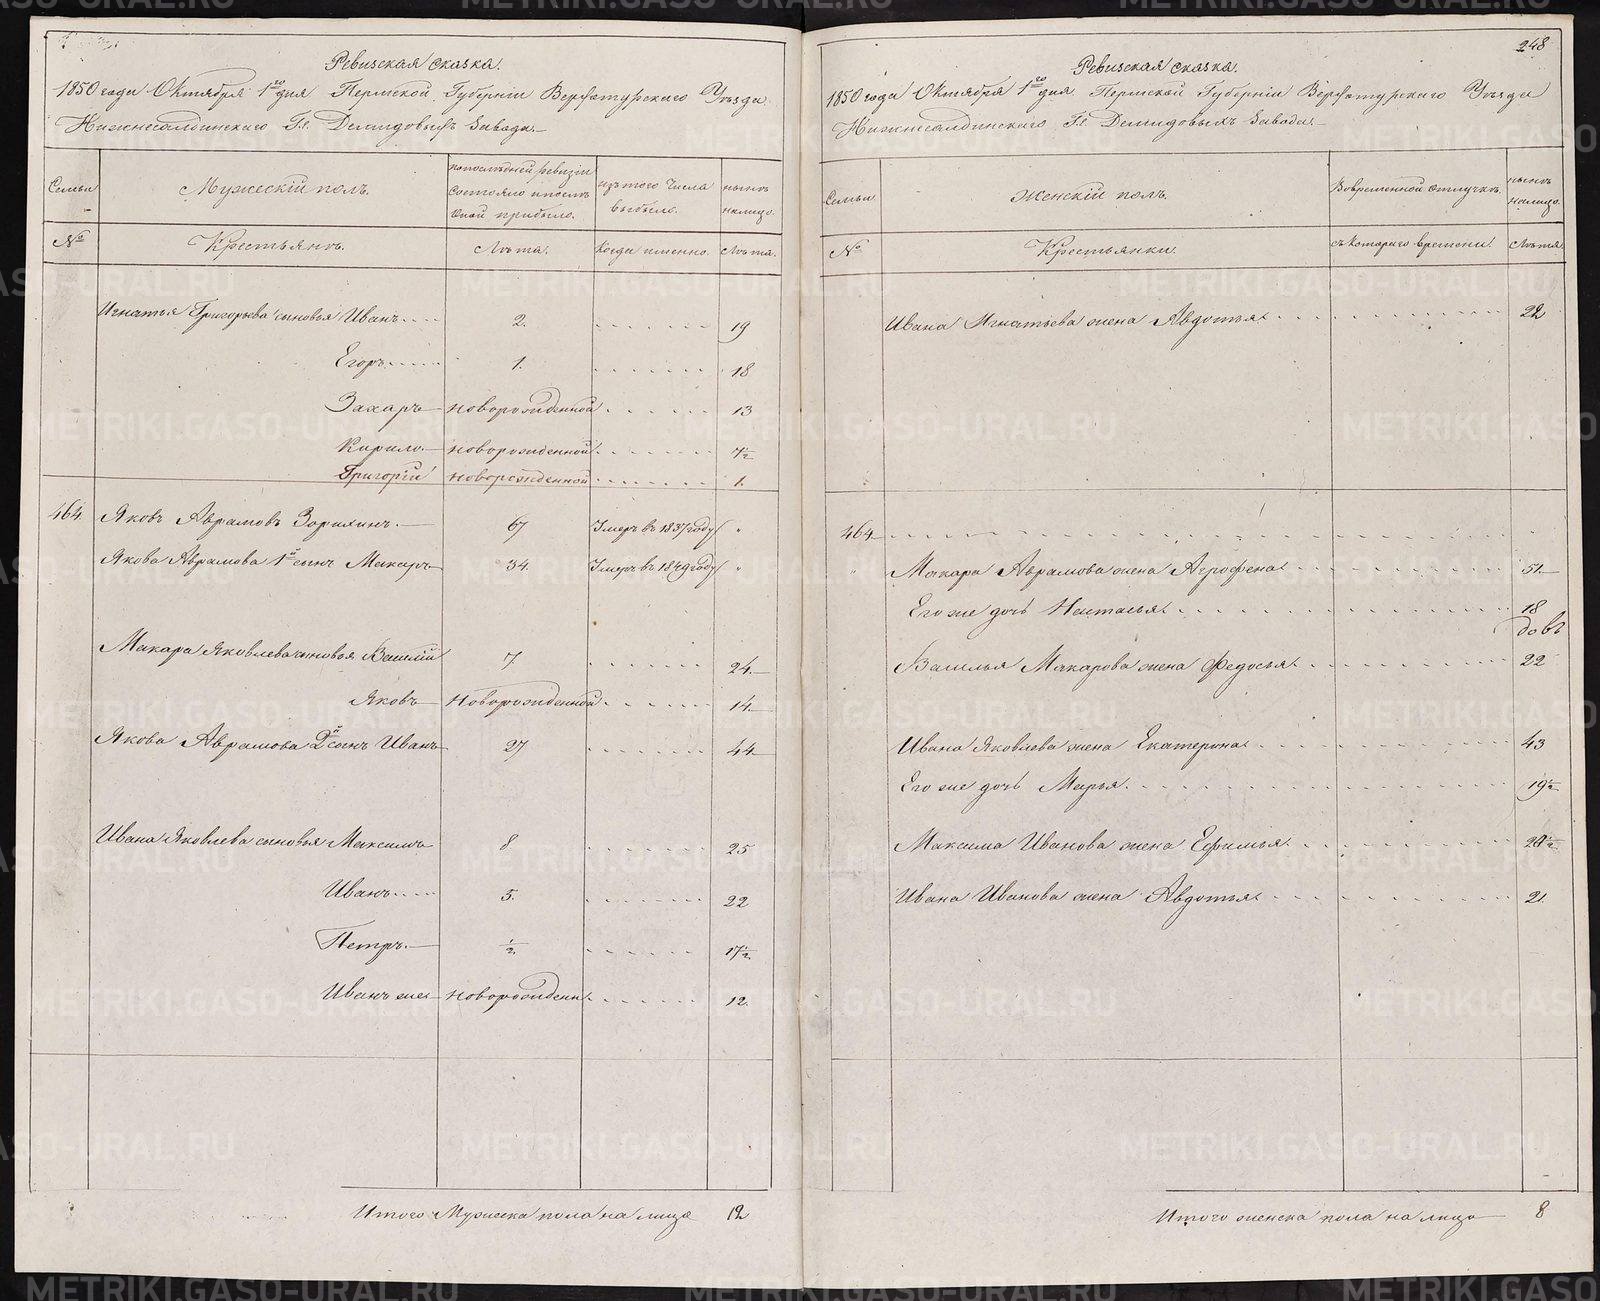 Ревизская сказка.
1850 года Октября 1го дня Пермской Губернiи Верхотурскаго Уѣзда
Нижнесалдинскаго Гг. Демидовыхъ Завода.
Семьи
Мужескiй полъ.
по послѣдней ревизiи состояло и послѣ оной прибыло.
изъ того числа выбыло.
нынѣ налицо.
№
Крестьянъ.
Лѣта.
Когда именно.
Лѣта.
Игнатья Григорьева сыновья Иванъ 2. 19
Егоръ 1. 18
Захаръ новорожденной 13
Кирило новорожденной 7½
Григорiй новорожденной 1.
464. Яковъ Аврамовъ Зорихинъ. 67 Умеръ въ 1837 году "
Якова Аврамова 1й сынъ Макаръ 34. Умеръ въ 1849 году "
Макара Яковлева сыновья Василiй 7 24.
Яковъ Новорожденной 14.
Якова Аврамова 2й сынъ Иванъ 27 44
Ивана Яковлева сыновья Максимъ 8 25
Иванъ 5. 22
Петръ. ½ 17½
Иванъ же новорожден. 12.
Итого Мужеска пола на лицо 12
248
Ревизская сказка.
1850 года Октября 1го дня Пермской Губернiи Верхотурскаго Уѣзда
Нижнесалдинскаго Гг. Демидовыхъ Завода.
Семьи
Женскiй полъ.
Во временной отлучкѣ.
нынѣ налицо.
№
Крестьянки.
съ котораго времени.
Лѣта.
Ивана Игнатьева жена Авдотья 22
464
Макара Аврамова жена Агрофена 51.
Его же дочь Настасья. 18
довъ
Василья Макарова жена Федосья. 22
Ивана Яковлева жена Екатерина 43
Его же дочь Марья. 19½
Максима Иванова жена Ефимья 20½
Ивана Иванова жена Авдотья 21.
Итого женска пола на лицо 8
METRIKI.GASO-URAL.RU